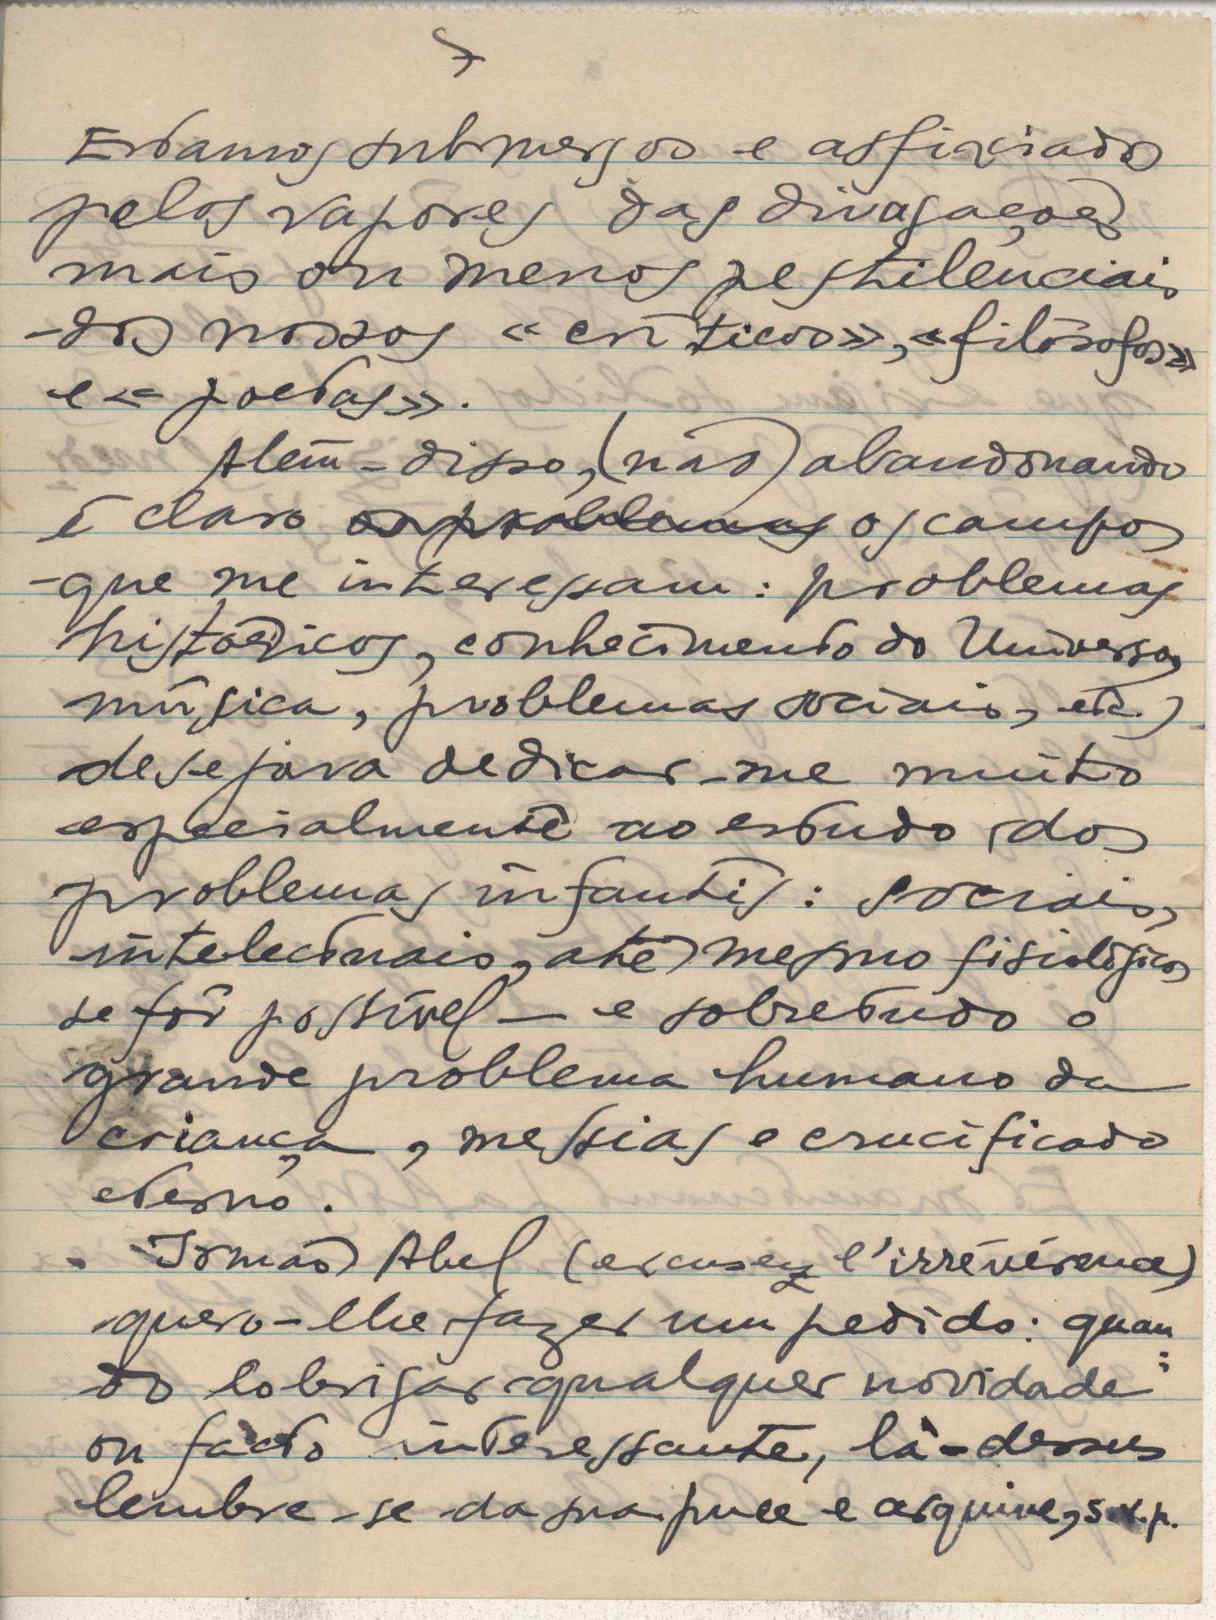 7
Estamos submersos e asfixiados
pelos vapores das divagações
mais ou menos pestilenciais
dos nossos «críticos», «filósofos»
e «poetas».
Além-disso, (não) abandonando
é claro os problemas os campos
que me interessam: problemas
históricos, conhecimento do Universo,
música, problemas sociais, etc.)
desejava dedicar-me muito
especialmente ao estudo dos
problemas infantis: sociais,
intelectuais, até mesmo fisiológicos
se fôr possível — e sobretudo o
grande problema humano da
criança, messias e crucificado
eterno.
Irmão Abel (excusez l'irrévérence)
quero-lhe fazer um pedido: quan
do lobrigar qualquer novidade
ou facto interessante, là-dessus
lembre-se da sua puce e arquive, s.v.p.